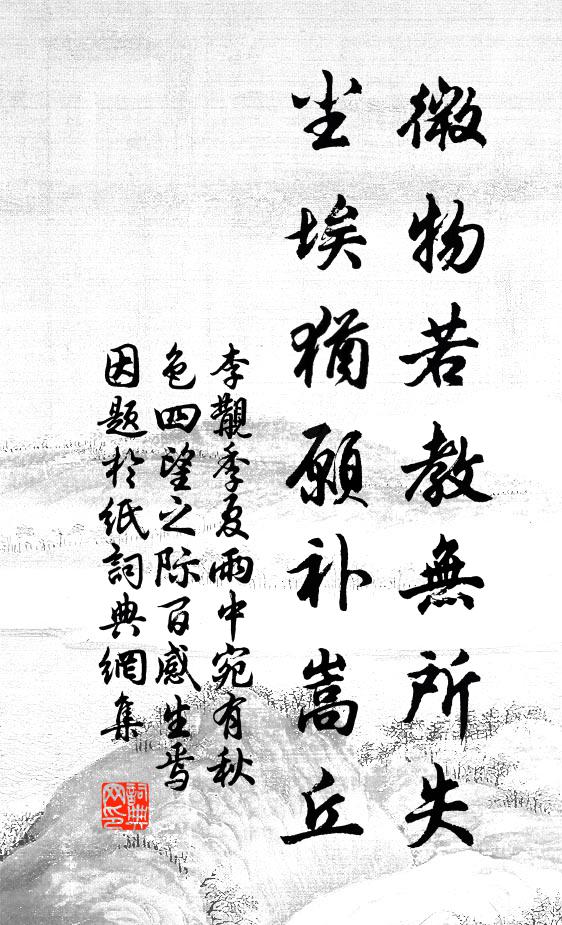 微物若教無所失
尘埃猶願补嵩丘
李覯季夏雨中宛有秋
色四望之际百感生焉
因题於纸詞典網集
詞典
网印